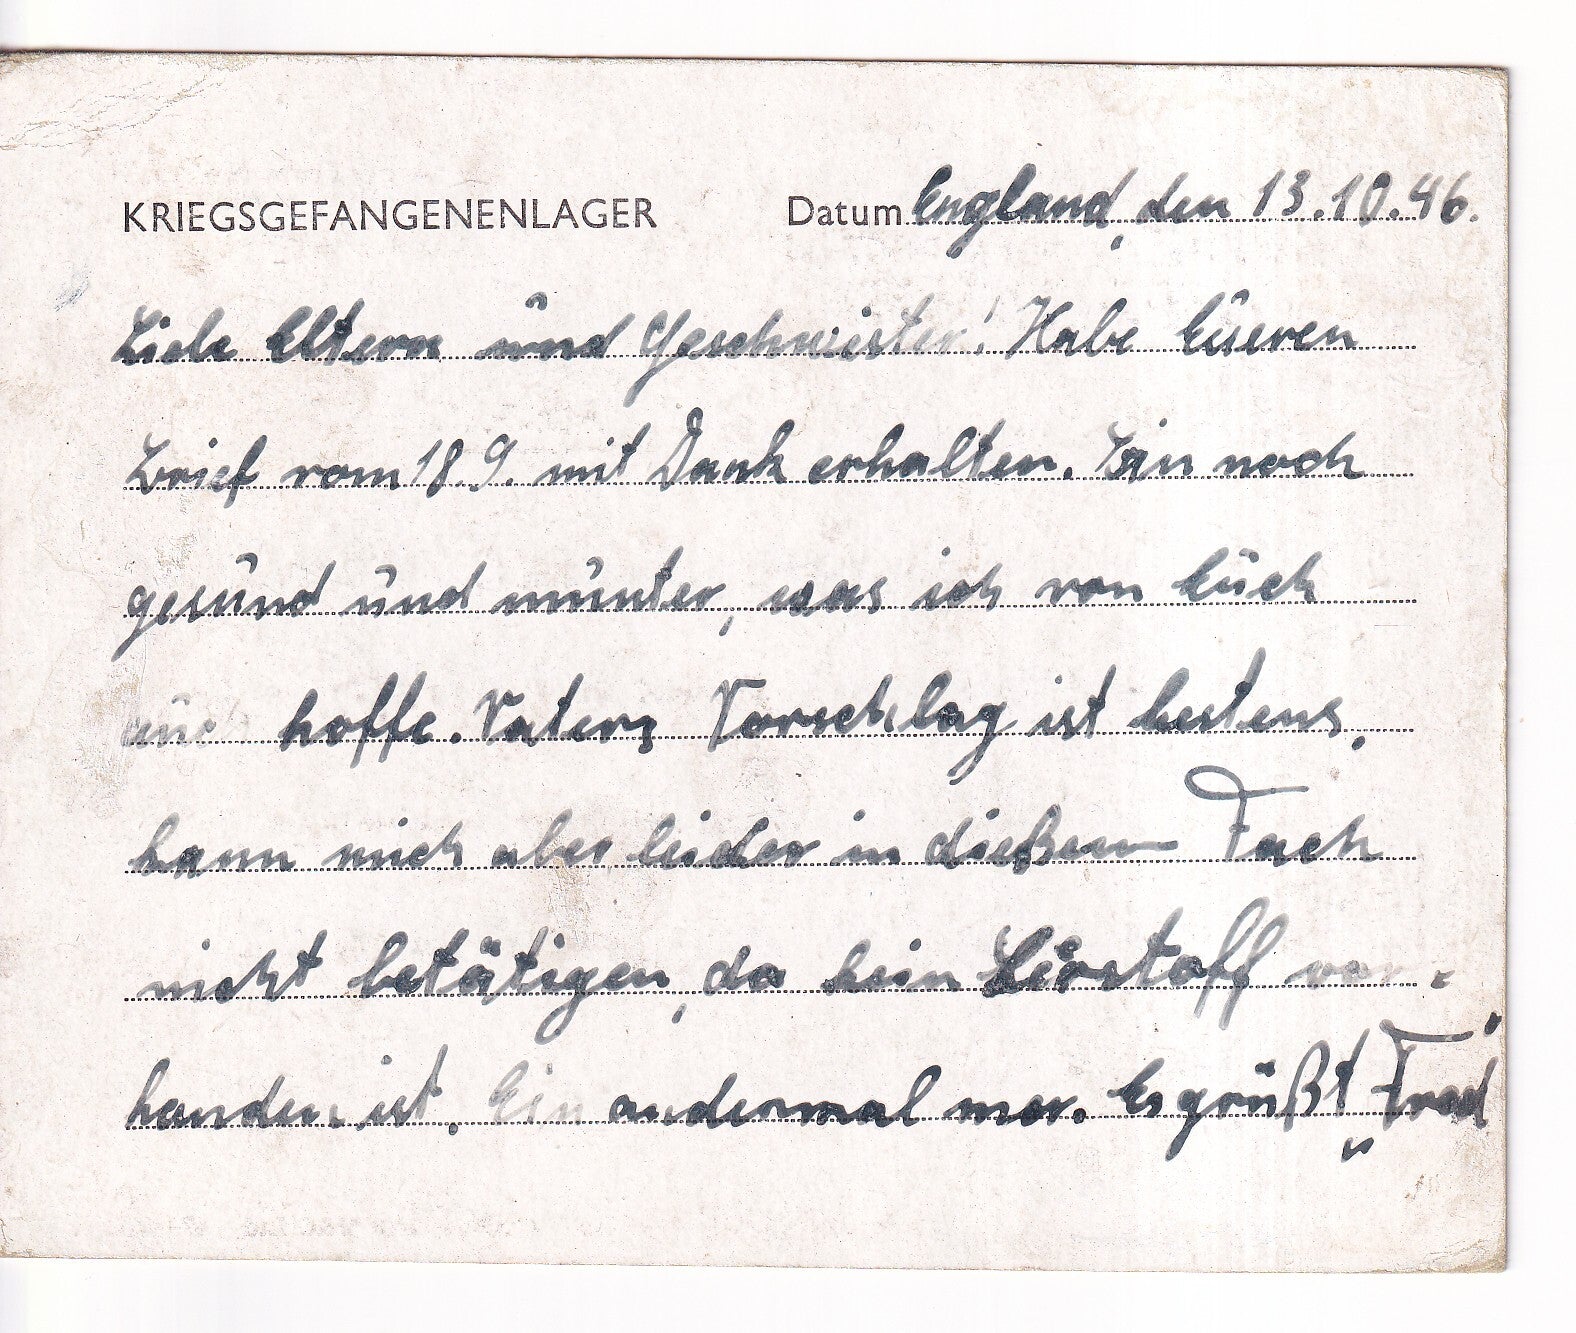 KRIEGSGEFANGENENLAGER Datum England, den 13.10.46.
Liebe Eltern und Geschwister! Habe Eueren
Brief vom 18.9. mit Dank erhalten. Bin noch
gesund und munter, was ich von Euch
auch hoffe. Vaters Vorschlag ist bestens,
kann mich aber leider in dießem Fach
nicht betätigen, da kein Lerstoff vor-
handen ist. Ein andermal mer. Es grüßt „Fred"